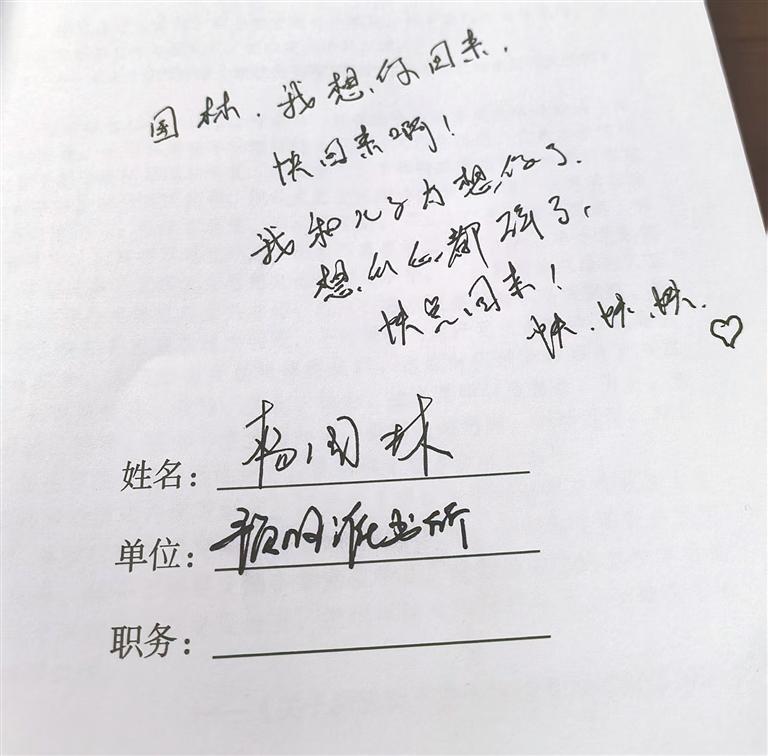 国林，我想你回来，
快回来啊！
我和儿子太想你了，
想你想都疯了，
快点回来！
快、快、快、
姓名：杨国林
单位：派出所
职务：